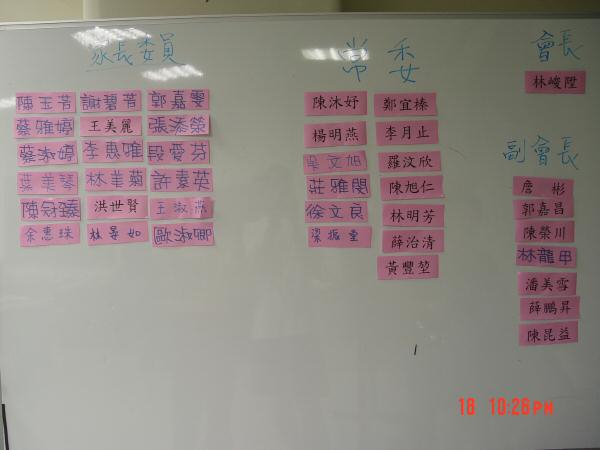 家長委員
陳玉芳 謝碧芳 郭嘉雯
蔡雅婷 王美麗 張添榮
蔡淑婷 李惠雅 段愛芬
葉美琴 林美菊 許素英
陳冠臻 洪世賢 王淑燕
余惠珠 林晏如 歐淑卿
常委
陳沐妤 鄭宜榛
楊明燕 李月止
吳文旭 羅汶欣
莊雅閔 陳旭仁
徐文良 林明芳
梁振堂 薛治清
黃豐堃
會長
林峻陞
副會長
詹彬
郭嘉昌
陳榮川
林龍甲
潘美雪
薛鵬昇
陳昆益
18 10:26PM